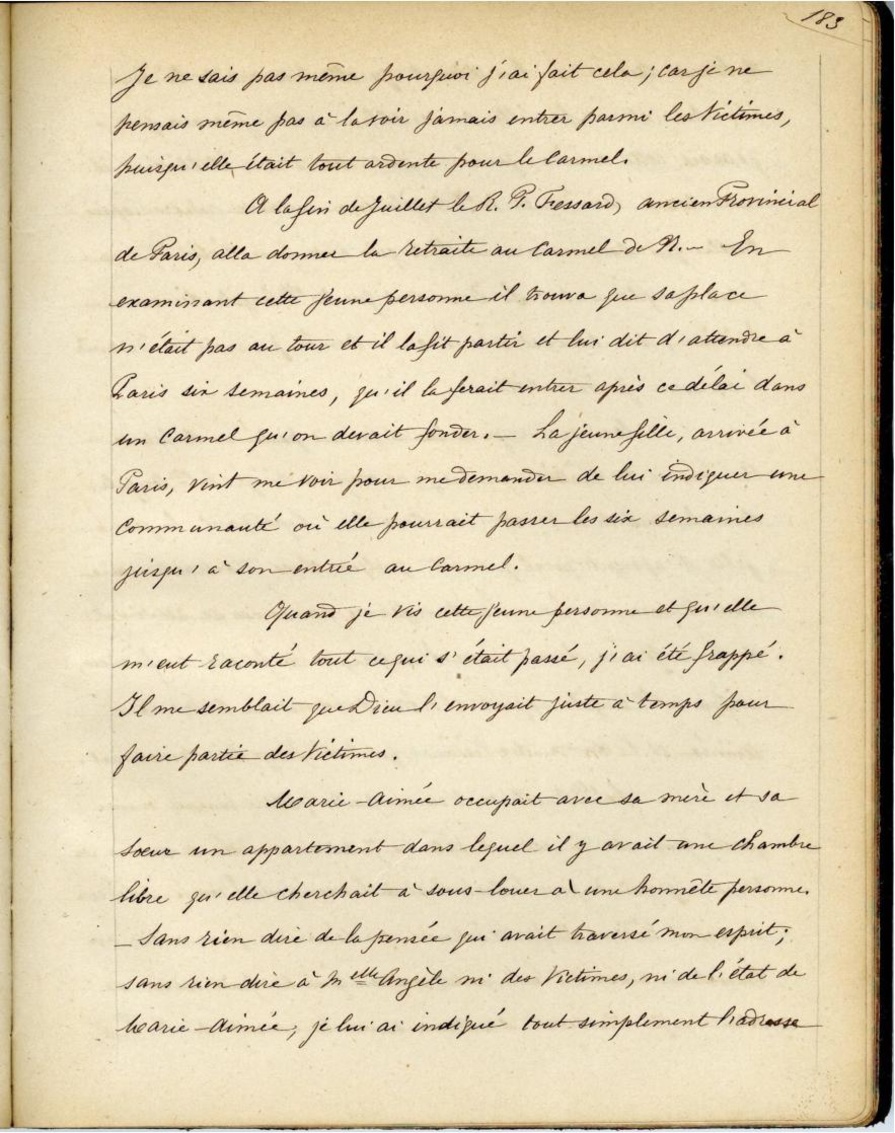 183
Je ne sais pas même pourquoi j'ai fait cela; car je ne
pensais même pas à la voir jamais entrer parmi les Victimes,
puisqu'elle était tout ardente pour le Carmel.
A la fin de Juillet le R. P. Fessard, ancien Provincial
de Paris, alla donner la retraite au Carmel de N.— En
examinant cette jeune personne il trouva que sa place
n'était pas au tour et il la fit partir et lui dit d'attendre à
Paris six semaines, qu'il la ferait entrer après ce délai dans
un Carmel qu'on devait fonder.— La jeune fille, arrivée à
Paris, vint me voir pour me demander de lui indiquer une
Communauté où elle pourrait passer les six semaines
jusqu'à son entrée au Carmel.
Quand je vis cette jeune personne et qu'elle
m'eut raconté tout ce qui s'était passé, j'ai été frappé.
Il me semblait que Dieu l'envoyait juste à temps pour
faire partie des Victimes.
Marie-Aimée occupait avec sa mère et sa
sœur un appartement dans lequel il y avait une chambre
libre qu'elle cherchait à sous-louer à une honnête personne.
— Sans rien dire de la pensée qui avait traversé mon esprit;
sans rien dire à Melle Angèle ni des Victimes, ni de l'état de
Marie-Aimée, je lui ai indiqué tout simplement l'adresse